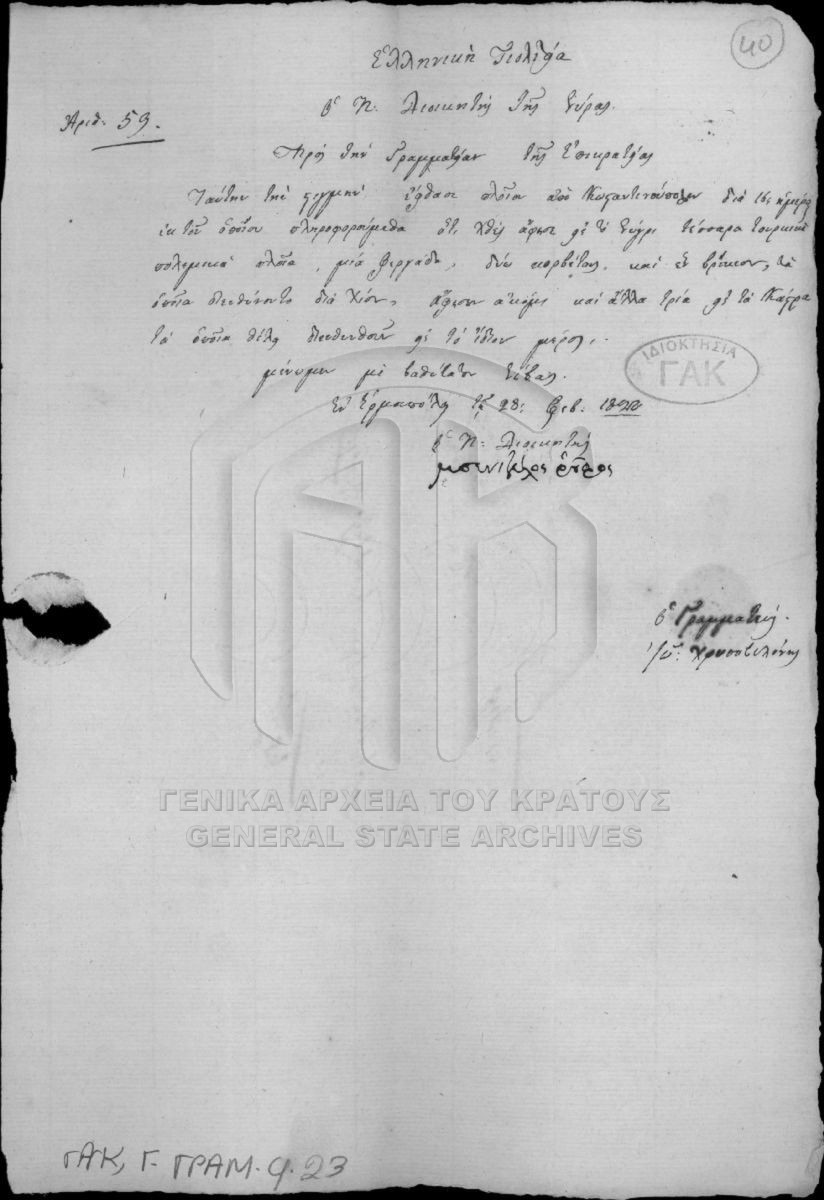 40
Ἑλληνικὴ Πολιτεία
Ἀριθ. 59.
ὁ Π: Διοικητὴς τῆς Σύρας.
Πρὸς τὴν Γραμματείαν τῆς Ἐπικρατείας
Ταύτην τὴν στιγμὴν ἔφθασε πλοῖον ἀπὸ Κωσταντινούπολιν διὰ ἡμέρας
ἐκ τοῦ ὁποίου πληροφορούμεθα ὅτι χθὲς ἄφησε εἰς τὸ Σύγρι τέσσαρα τουρκικὰ
πολεμικὰ πλοῖα, μία φεργάδα, δύω κορβέτας, καὶ ἓν βρίκιον, τὰ
ὁποῖα διευθύνοντο διὰ Χίον, ἄφησεν ἀκόμι καὶ ἄλλα τρία εἰς τὰ Κάστρα
τὰ ὁποῖα θέλει διευθυνθοῦν εἰς τὸ ἴδιον μέρος.
μένωμεν μὲ βαθύτατον σέβας.
Ἐν Ἑρμουπόλει τῇ 28: Φεβ: 1828
ὁ Π: Διοικητὴς
ὁ Γραμματεὺς.
ΙΔΙΟΚΤΗΣΙΑ
ΓΑΚ
ΓΕΝΙΚΑ ΑΡΧΕΙΑ ΤΟΥ ΚΡΑΤΟΥΣ
GENERAL STATE ARCHIVES
ΓΑΚ, Γ. ΓΡΑΜ. φ. 23